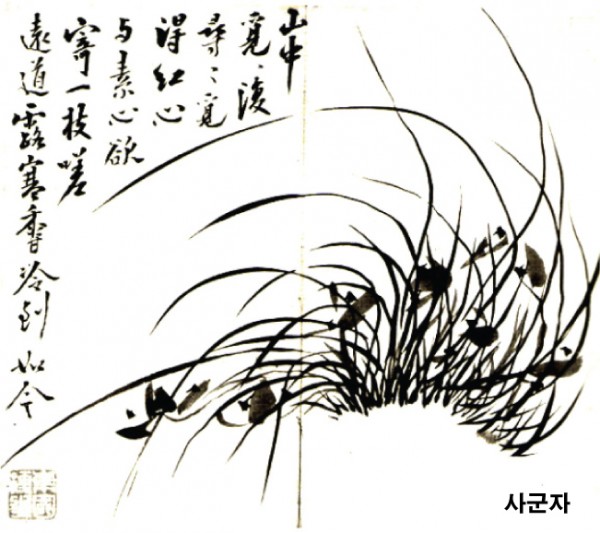 山中
覓〻復
尋〻覓
得紅心
与素心欲
寄一枝嗟
遠道露寒香冷到如今
사군자